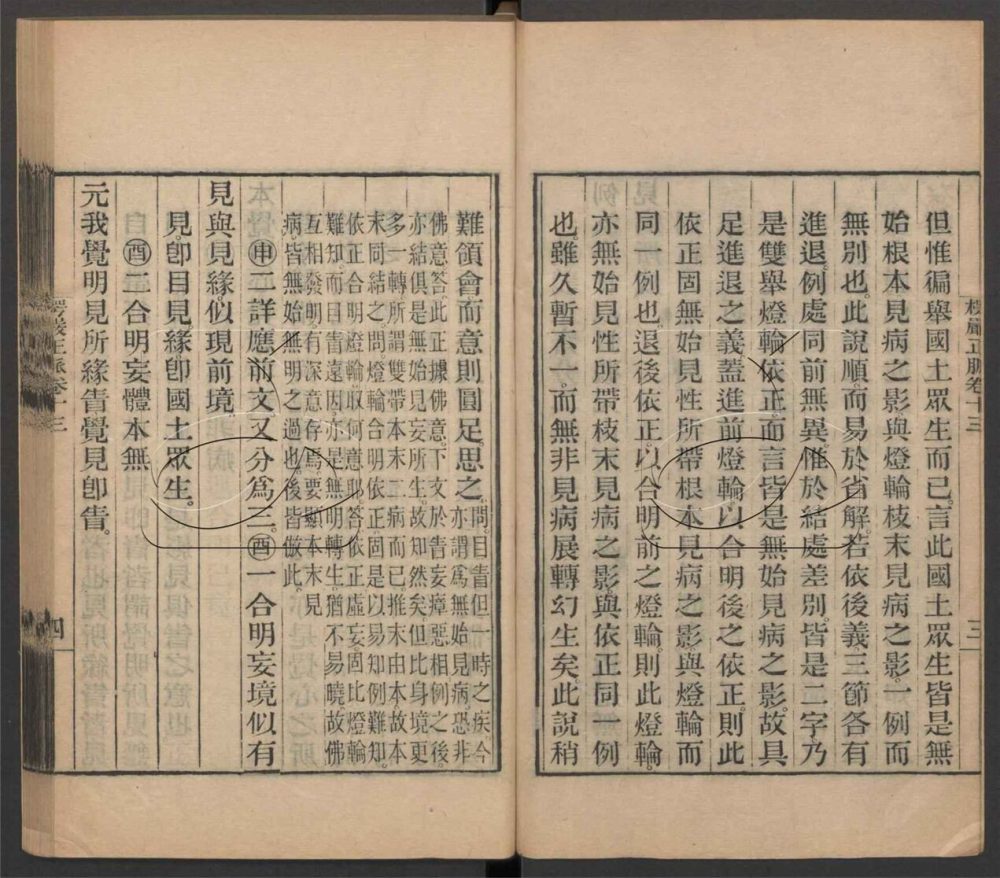 但惟徧舉國土眾生而已。言此國土眾生皆是無
始根本見病之影與燈輪枝末見病之影。一例而
無別也。此說順而易於省解。若依後義。三節各有
進退。例處同前無異。惟於結處差別。皆是二字。乃
是雙舉燈輪依正。而言皆是無始見病之影。故具
足進退之義。蓋進前燈輪。以合明後之依正。則此
依正固無始見性所帶根本見病之影。與燈輪而
同一例也。退後依正。以合明前之燈輪。則此燈輪
亦無始見性所帶枝末見病之影。與依正同一例
也。雖久暫不一。而無非見病展轉幻生矣。此說稍
楞嚴正脈卷十三
三
難領會而意則圓足。思之。
問。目眚但一時之疾。今亦謂為無始見病。恐非
佛意。答。此正據佛意。下文於眚妄瘴惡相例之後。
亦結俱是無始見妄所生。故知然矣。但比身境更
多一轉。所謂雙帶本末二病而已。推末由本。故本
末同結之。問。燈輪合明依正。固是以易知例難知。
依正合明燈輪。取何意耶。答。依正虛妄。固比燈輪
難知。而目眚遠因。亦是無明轉生。猶不易曉。故佛
互相發明。有深意存焉。要顯本末見
病。皆無始無明之過也。後皆倣此。
申二詳應前文又分為三。酉一合明妄境似有
見與見緣。似現前境。
見。即目見。緣。即國土眾生。
酉二合明妄體本無
元我覺明見所緣眚。覺見即眚。
楞嚴正脈卷十三
四